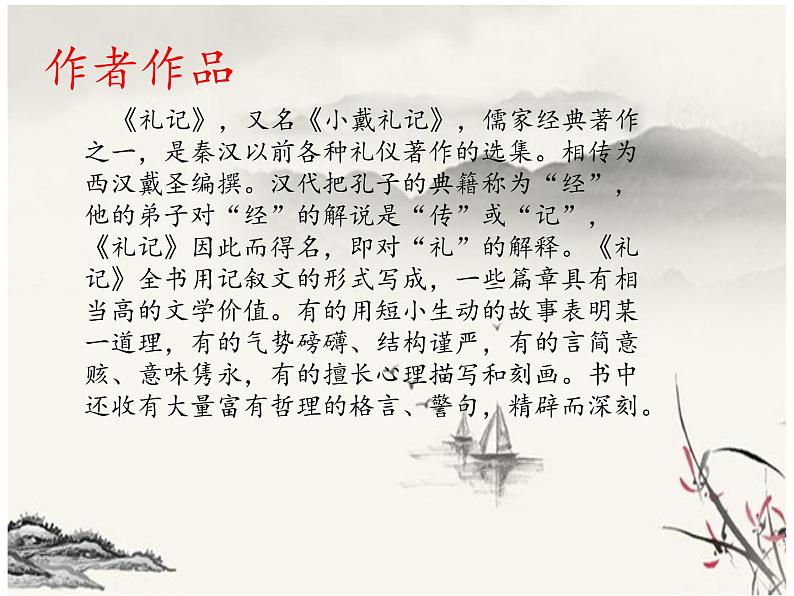 作者作品
《礼记》，又名《小戴礼记》，儒家经典著作
之一，是秦汉以前各种礼仪著作的选集。相传为
西汉戴圣编撰。汉代把孔子的典籍称为“经”，
他的弟子对“经”的解说是“传”或“记”，
《礼记》因此而得名，即对“礼”的解释。《礼
记》全书用记叙文的形式写成，一些篇章具有相
当高的文学价值。有的用短小生动的故事表明某
一道理，有的气势磅礴、结构谨严，有的言简意
赅、意味隽永，有的擅长心理描写和刻画。书中
还收有大量富有哲理的格言、警句，精辟而深刻。